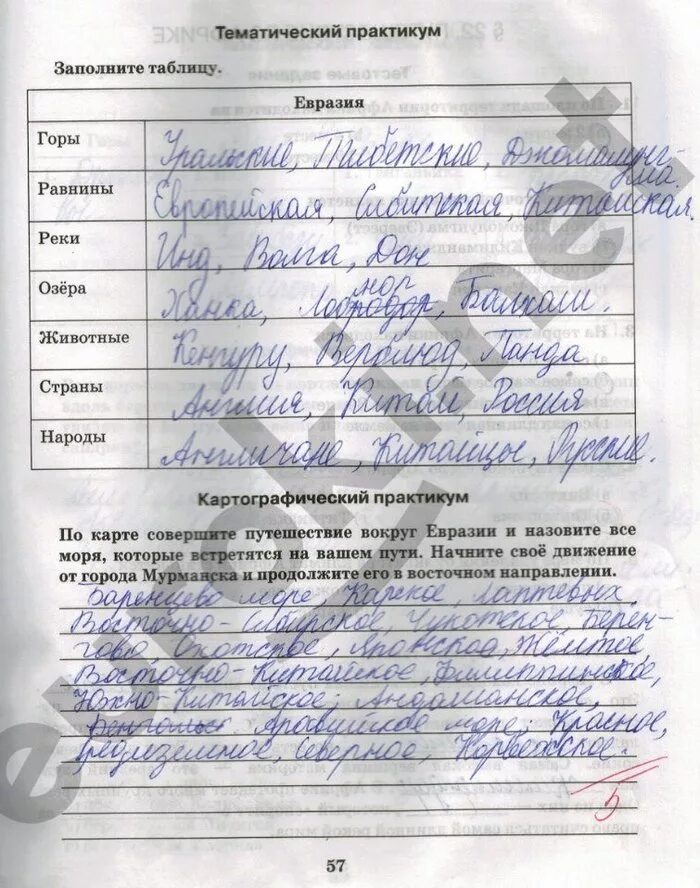 Тематический практикум
Заполните таблицу.
Евразия
Горы
Уральские, Тибетские, Джомалунг-
ма.
Равнины
Европейская, Сибитская, Китайская.
Реки
Инд, Волга, Дон
Озёра
нор
Ханка, Лоб, Балхаш.
Животные
Кенгуру, Верблюд, Панда
Страны
Англия, Китай, Россия
Народы
Англичане, Китайцы, Русские.
Картографический практикум
По карте совершите путешествие вокруг Евразии и назовите все
моря, которые встретятся на вашем пути. Начните своё движение
от города Мурманска и продолжите его в восточном направлении.
Баренцево море, Карское, Лаптевых,
Восточно-Сибирское, Чукотское, Берен-
гово, Охотское, Японское, Жёлтое,
Восточно-Китайское, Филиппинское,
Южно-Китайское, Андаманское,
Аравийское море, Красное,
Средиземное, Северное, Норвежское.
5
57